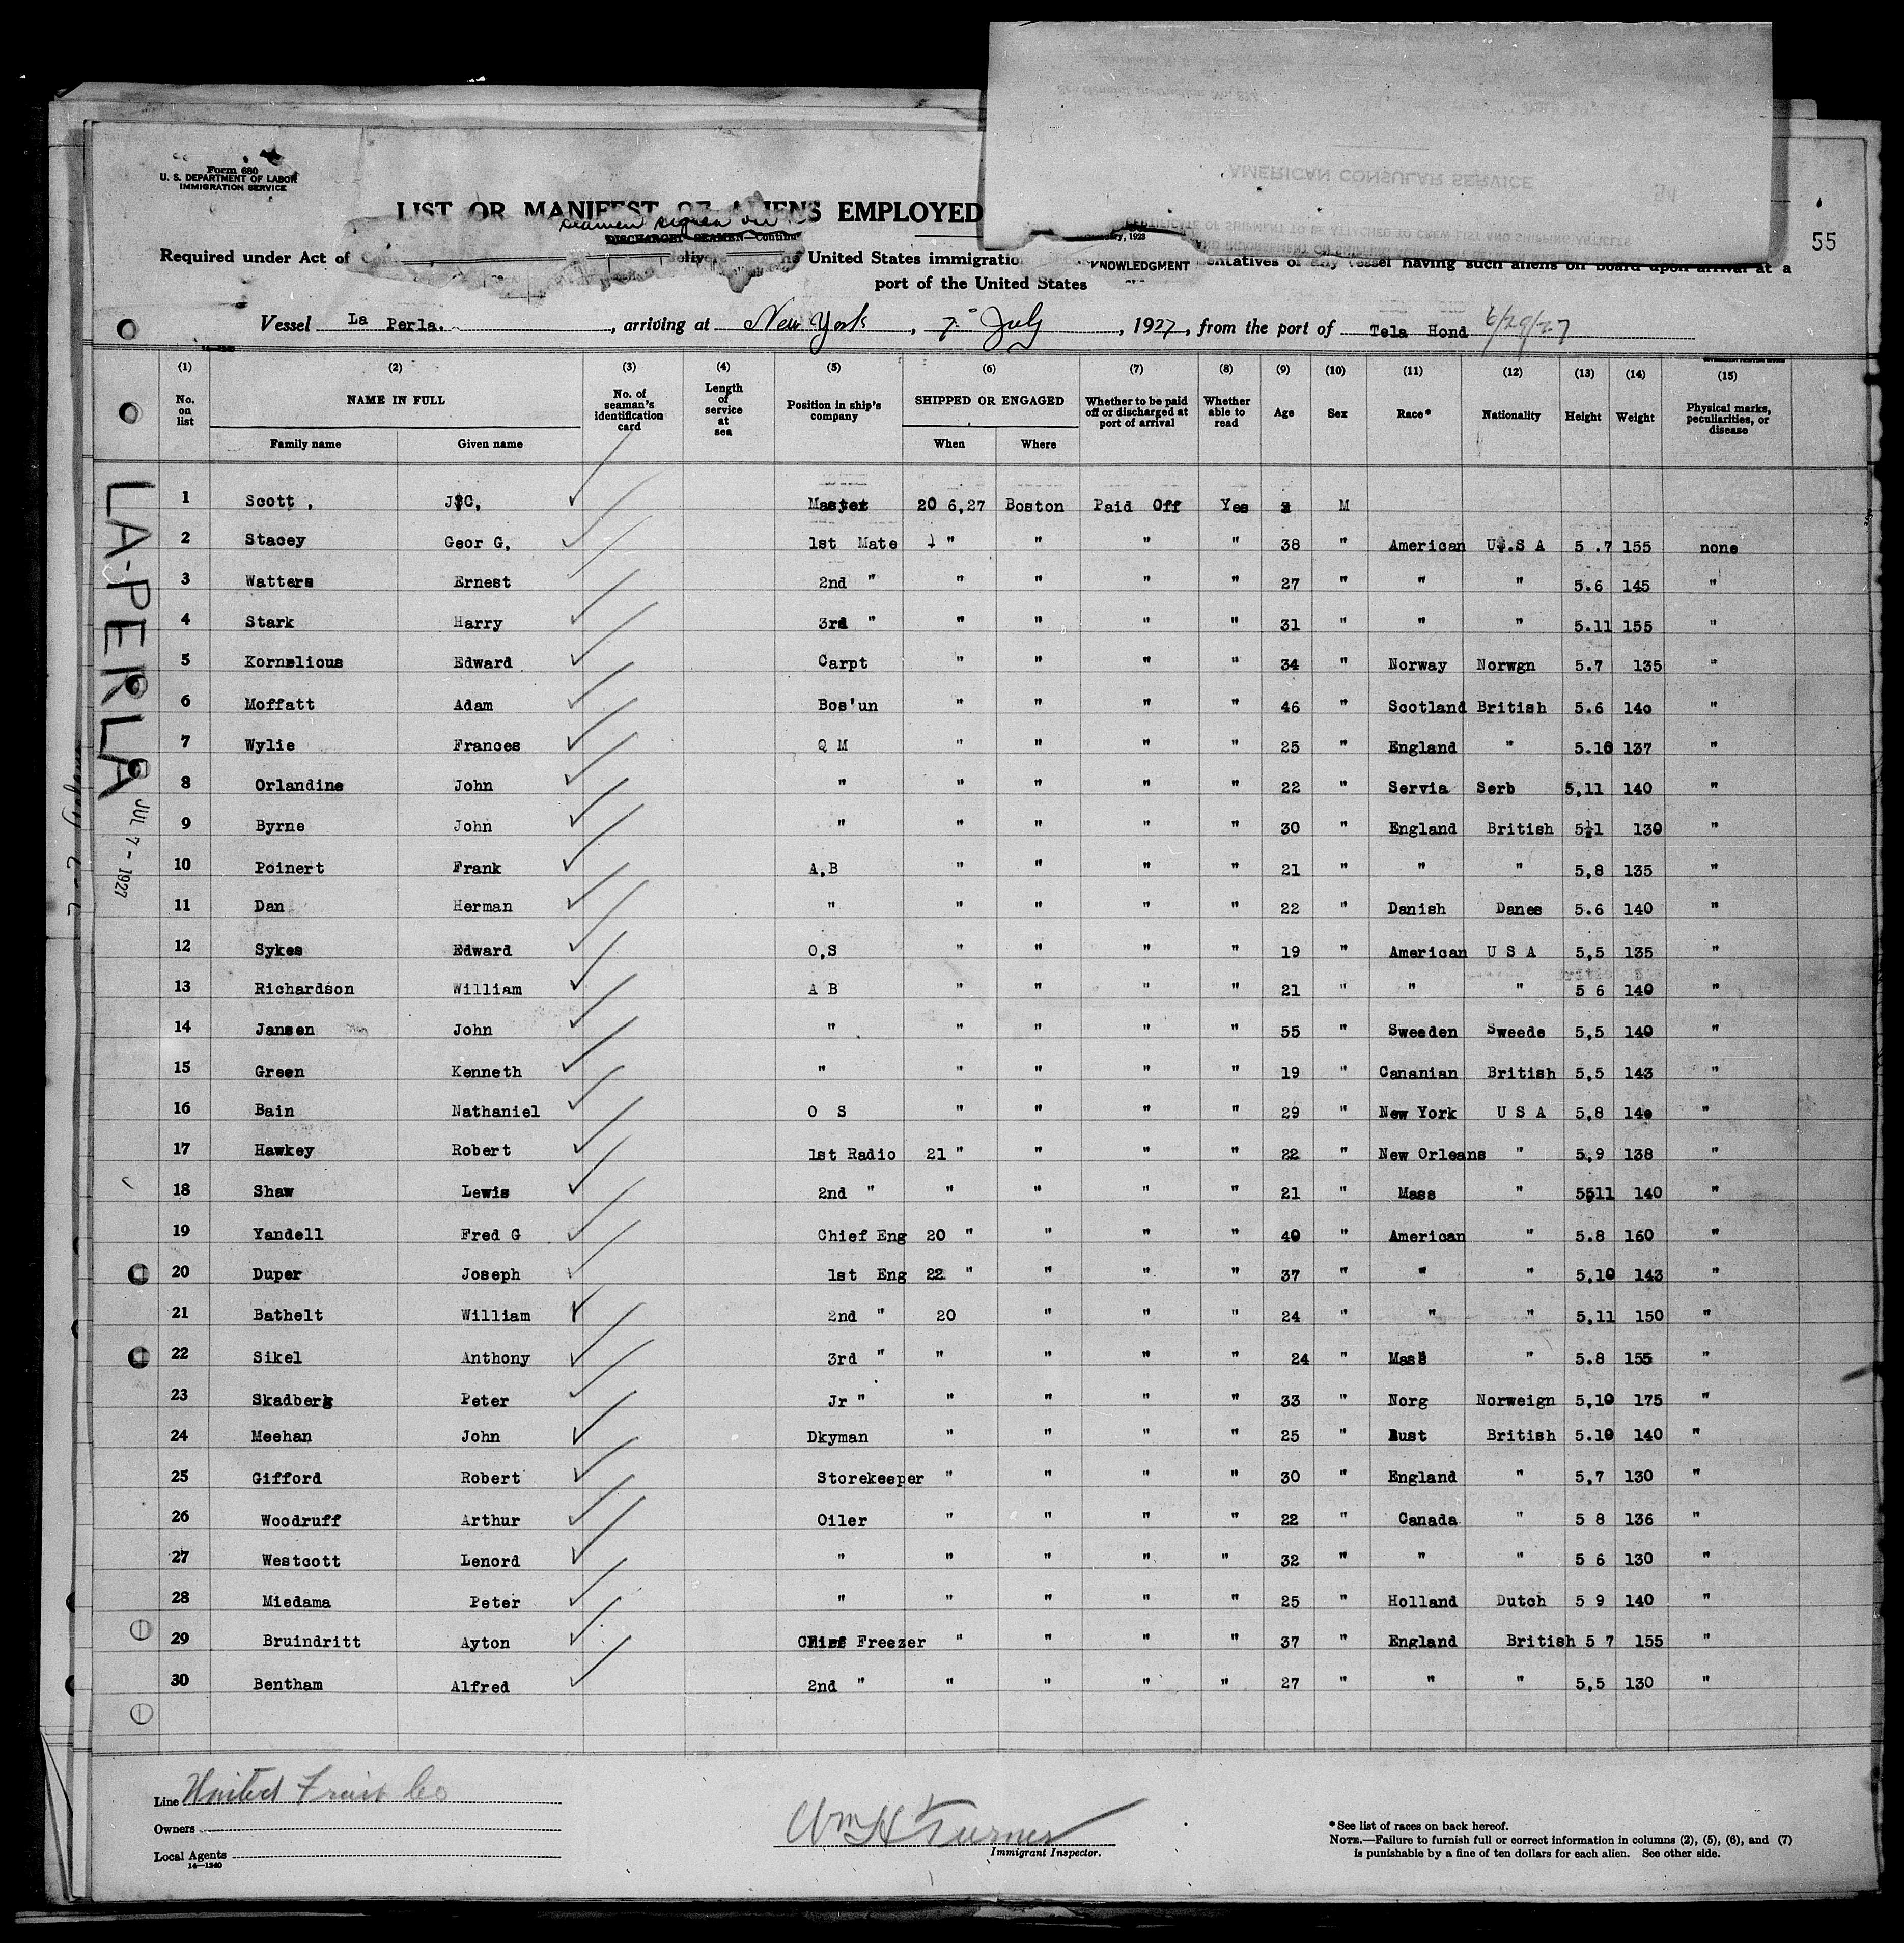 Form 680
U. S. DEPARTMENT OF LABOR
IMMIGRATION SERVICE
AMERICAN CONSULAR SERVICE
CERTIFICATE OF SHIPMENT TO BE ATTACHED TO CREW LIST AND SHIPPING ARTICLES
55
LIST OR MANIFEST OF ALIENS EMPLOYED
Required under Act of United States immigration any vessel having such aliens on board upon arrival at a
KNOWLEDGMENT
port of the United States
Vessel La Perla. , arriving at New York , 7 July , 1927, from the port of Tela Hond 6/29/27
(1) (2) (3) (4) (5) (6) (7) (8) (9) (10) (11) (12) (13) (14) (15)
No. on list NAME IN FULL No. of seaman's identification card Length of service at sea Position in ship's company SHIPPED OR ENGAGED Whether to be paid off or discharged at port of arrival Whether able to read Age Sex Race* Nationality Height Weight Physical marks, peculiarities, or disease
Family name Given name When Where
LA-PERLA
JUL 7 - 1927
1 Scott , J C, Master 20 6,27 Boston Paid Off Yes M
2 Stacey Geor G, 1st Mate " " " " 38 " American U.S A 5 .7 155 none
3 Watters Ernest 2nd " " " " " 27 " " " 5.6 145 "
4 Stark Harry 3rd " " " " " 31 " " " 5.11 155 "
5 Kornelious Edward Carpt " " " " 34 " Norway Norwgn 5.7 135 "
6 Moffatt Adam Bos'un " " " " 46 " Scotland British 5.6 140 "
7 Wylie Frances Q M " " " " 25 " England " 5.10 137 "
8 Orlandine John " " " " " 22 " Servia Serb 5,11 140 "
9 Byrne John " " " " " 30 " England British 5½1 130 "
10 Poinert Frank A,B " " " " 21 " " " 5,8 135 "
11 Dan Herman " " " " " 22 " Danish Danes 5.6 140 "
12 Sykes Edward O,S " " " " 19 " American U S A 5,5 135 "
13 Richardson William A B " " " " 21 " " " 5 6 140 "
14 Jansen John " " " " " 55 " Sweeden Sweede 5,5 140 "
15 Green Kenneth " " " " " 19 " Cananian British 5,5 143 "
16 Bain Nathaniel O S " " " " 29 " New York U S A 5,8 140 "
17 Hawkey Robert 1st Radio 21 " " " " 22 " New Orleans " 5,9 138 "
18 Shaw Lewis 2nd " " " " " 21 " Mass " 5511 140 "
19 Yandell Fred G Chief Eng 20 " " " " 40 " American " 5.8 160 "
20 Duper Joseph 1st Eng 22 " " " " 37 " " " 5,10 143 "
21 Bathelt William 2nd " 20 " " " 24 " " " 5,11 150 "
22 Sikel Anthony 3rd " " " " " 24 " Mass " 5.8 155 "
23 Skadberg Peter Jr " " " " " 33 " Norg Norweign 5,10 175 "
24 Meehan John Dkyman " " " " 25 " Aust British 5.10 140 "
25 Gifford Robert Storekeeper " " " " 30 " England " 5,7 130 "
26 Woodruff Arthur Oiler " " " " 22 " Canada " 5 8 136 "
27 Westcott Lenord " " " " " 32 " " " 5 6 130 "
28 Miedama Peter " " " " " 25 " Holland Dutch 5 9 140 "
29 Bruindritt Ayton Chief Freezer " " " " 37 " England British 5 7 155 "
30 Bentham Alfred 2nd " " " " " 27 " " " 5,5 130 "
Line United Fruit Co
Owners
Local Agents
14—1240
Wm H Turner
Immigrant Inspector.
* See list of races on back hereof.
NOTE.—Failure to furnish full or correct information in columns (2), (5), (6), and (7)
is punishable by a fine of ten dollars for each alien. See other side.